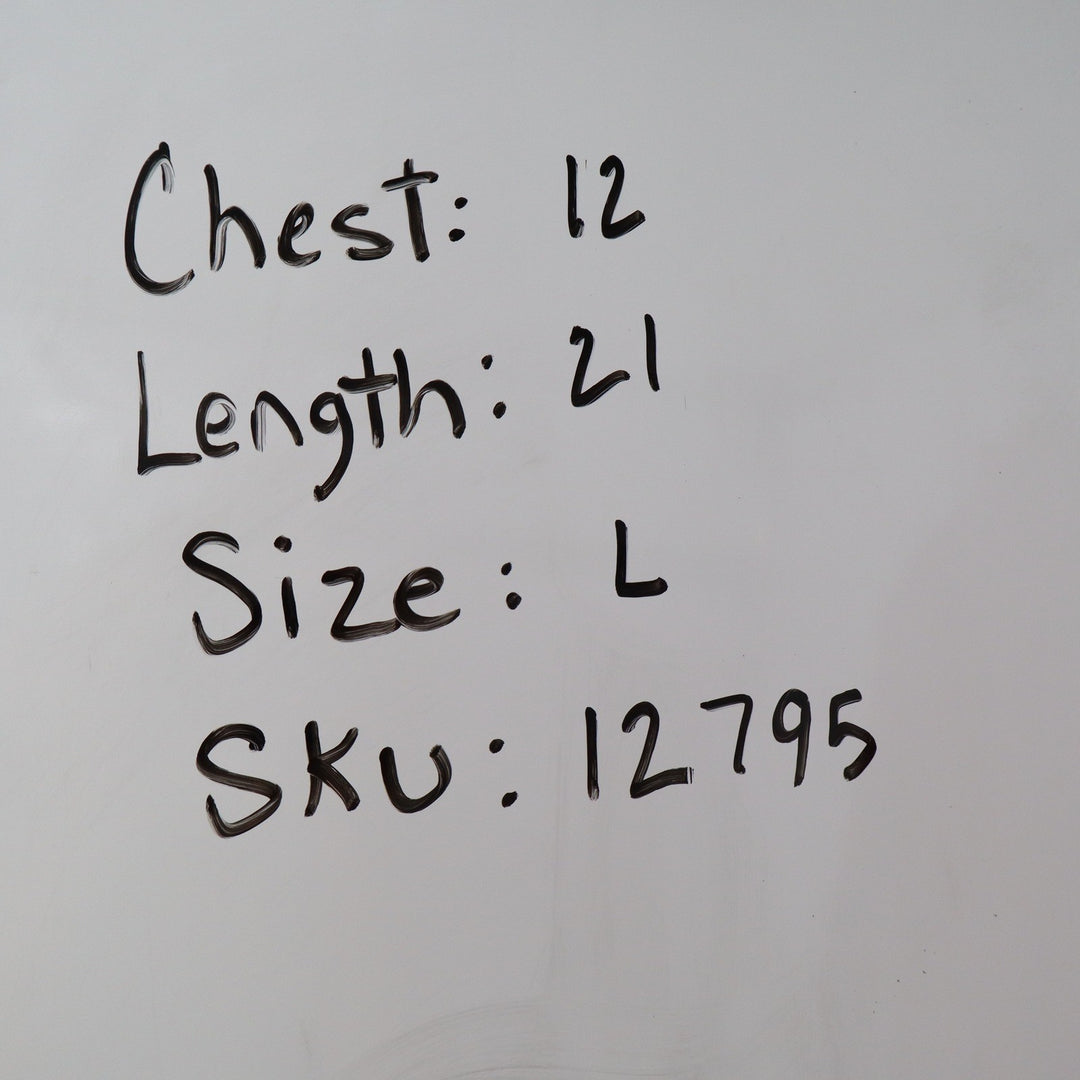 Chest: 12
Length: 21
Size: L
SKU: 12795